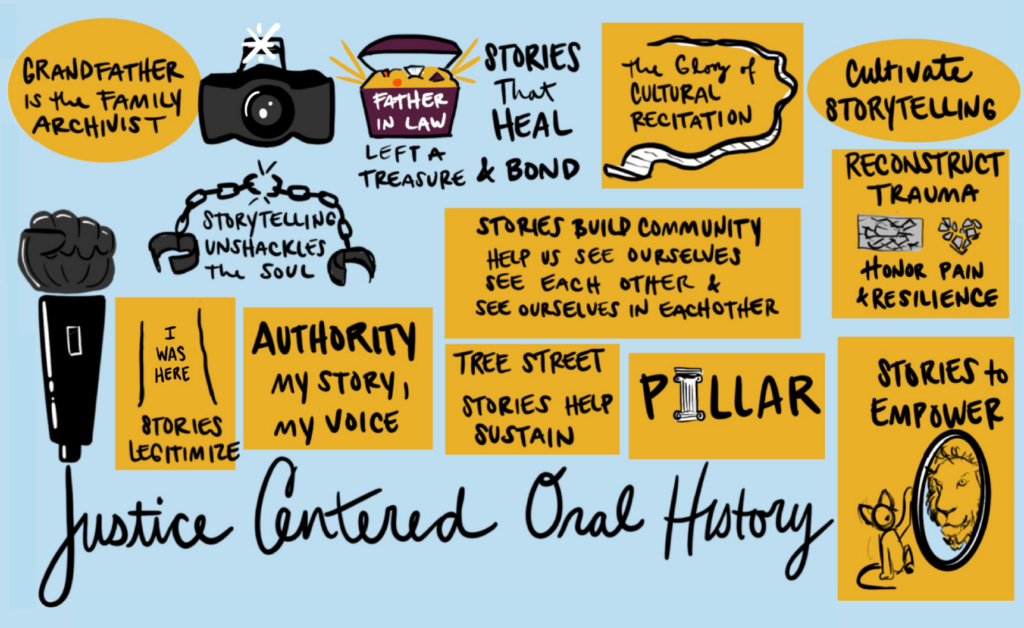 GRANDFATHER
is the FAMILY
ARCHIVIST
FATHER
IN LAW
LEFT A
TREASURE
STORIES
That
HEAL
& BOND
The Glory of
CULTURAL
RECITATION
Cultivate
STORYTELLING
STORYTELLING
UNSHACKLES
the SOUL
STORIES BUILD COMMUNITY
HELP US SEE OURSELVES
SEE EACH OTHER &
SEE OURSELVES IN EACHOTHER
RECONSTRUCT
TRAUMA
HONOR PAIN
& RESILIENCE
I
WAS
HERE
STORIES
LEGITIMIZE
AUTHORITY
MY STORY,
MY VOICE
TREE STREET
STORIES HELP
SUSTAIN
PILLAR
STORIES to
EMPOWER
Justice Centered Oral History